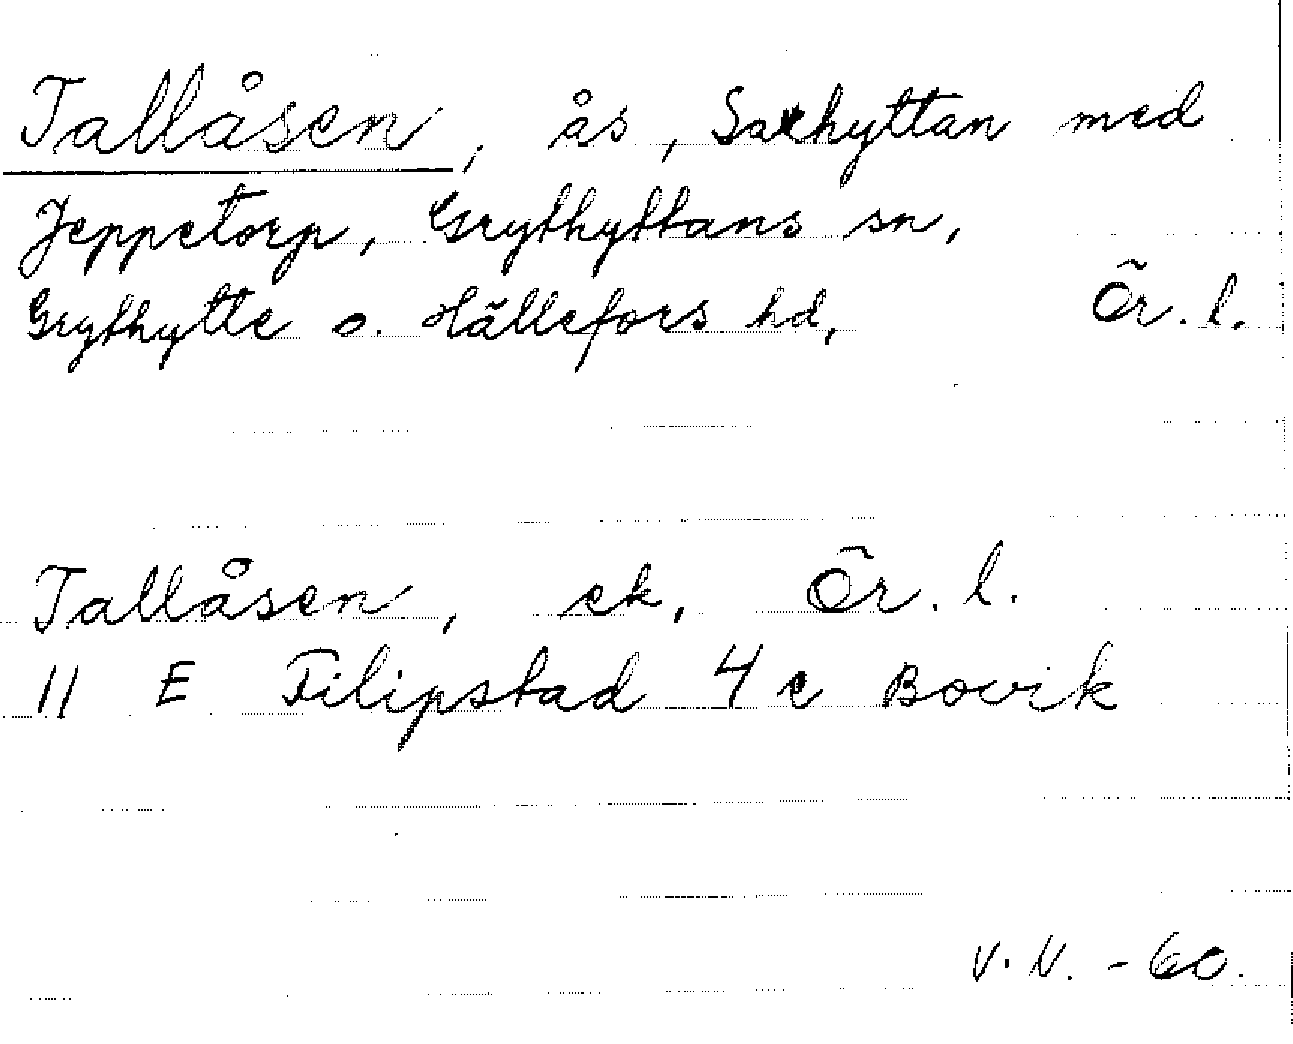 Tallåsen, ås, Saxhyttan med
Jeppetorp, Grythyttans sn,
Grythytte o. Hällefors hd, Ör. l.
Tallåsen, ek, Ör. l.
11 E Filipstad 4 c Bovik
V. N. - 60.